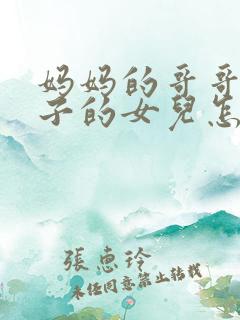 妈妈的哥哥
子的女兒怎
張惠玲
未经同意禁止转载